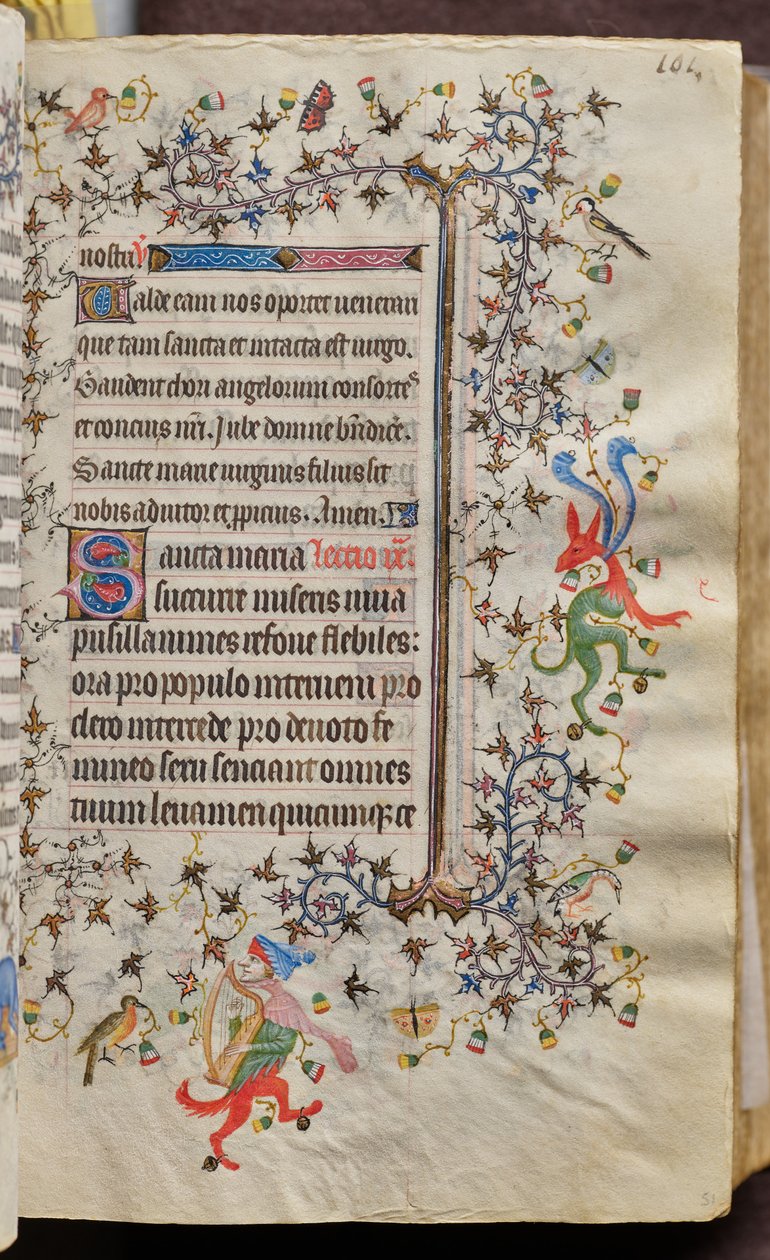 101
nostri ℣
Valde eam nos oportet veneran
que tam sancta et intacta est virgo.
Gaudent chori angelorum consortes
et concius nri. Jube domne bndicere.
Sancte marie virginis filius sit
nobis adiutor et ppicius. Amen.
Sancta maria Lectio ix.
succurre miseris iuva
pusillanimes refove flebiles:
ora pro populo interveni pro
clero intercede pro devoto fe
mineo sexu senciant omnes
tuum levamen quicumque ce
51